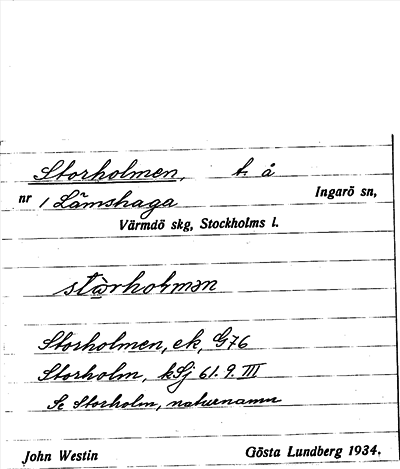 Storholmen, t. å
nr 1 Lämshaga Ingarö sn,
Värmdö skg, Stockholms l.
stωrholmən
Storholmen, ek, G76
Storholm, kSj 61.9. III
Se Storholm, naturnamn
John Westin Gösta Lundberg 1934.